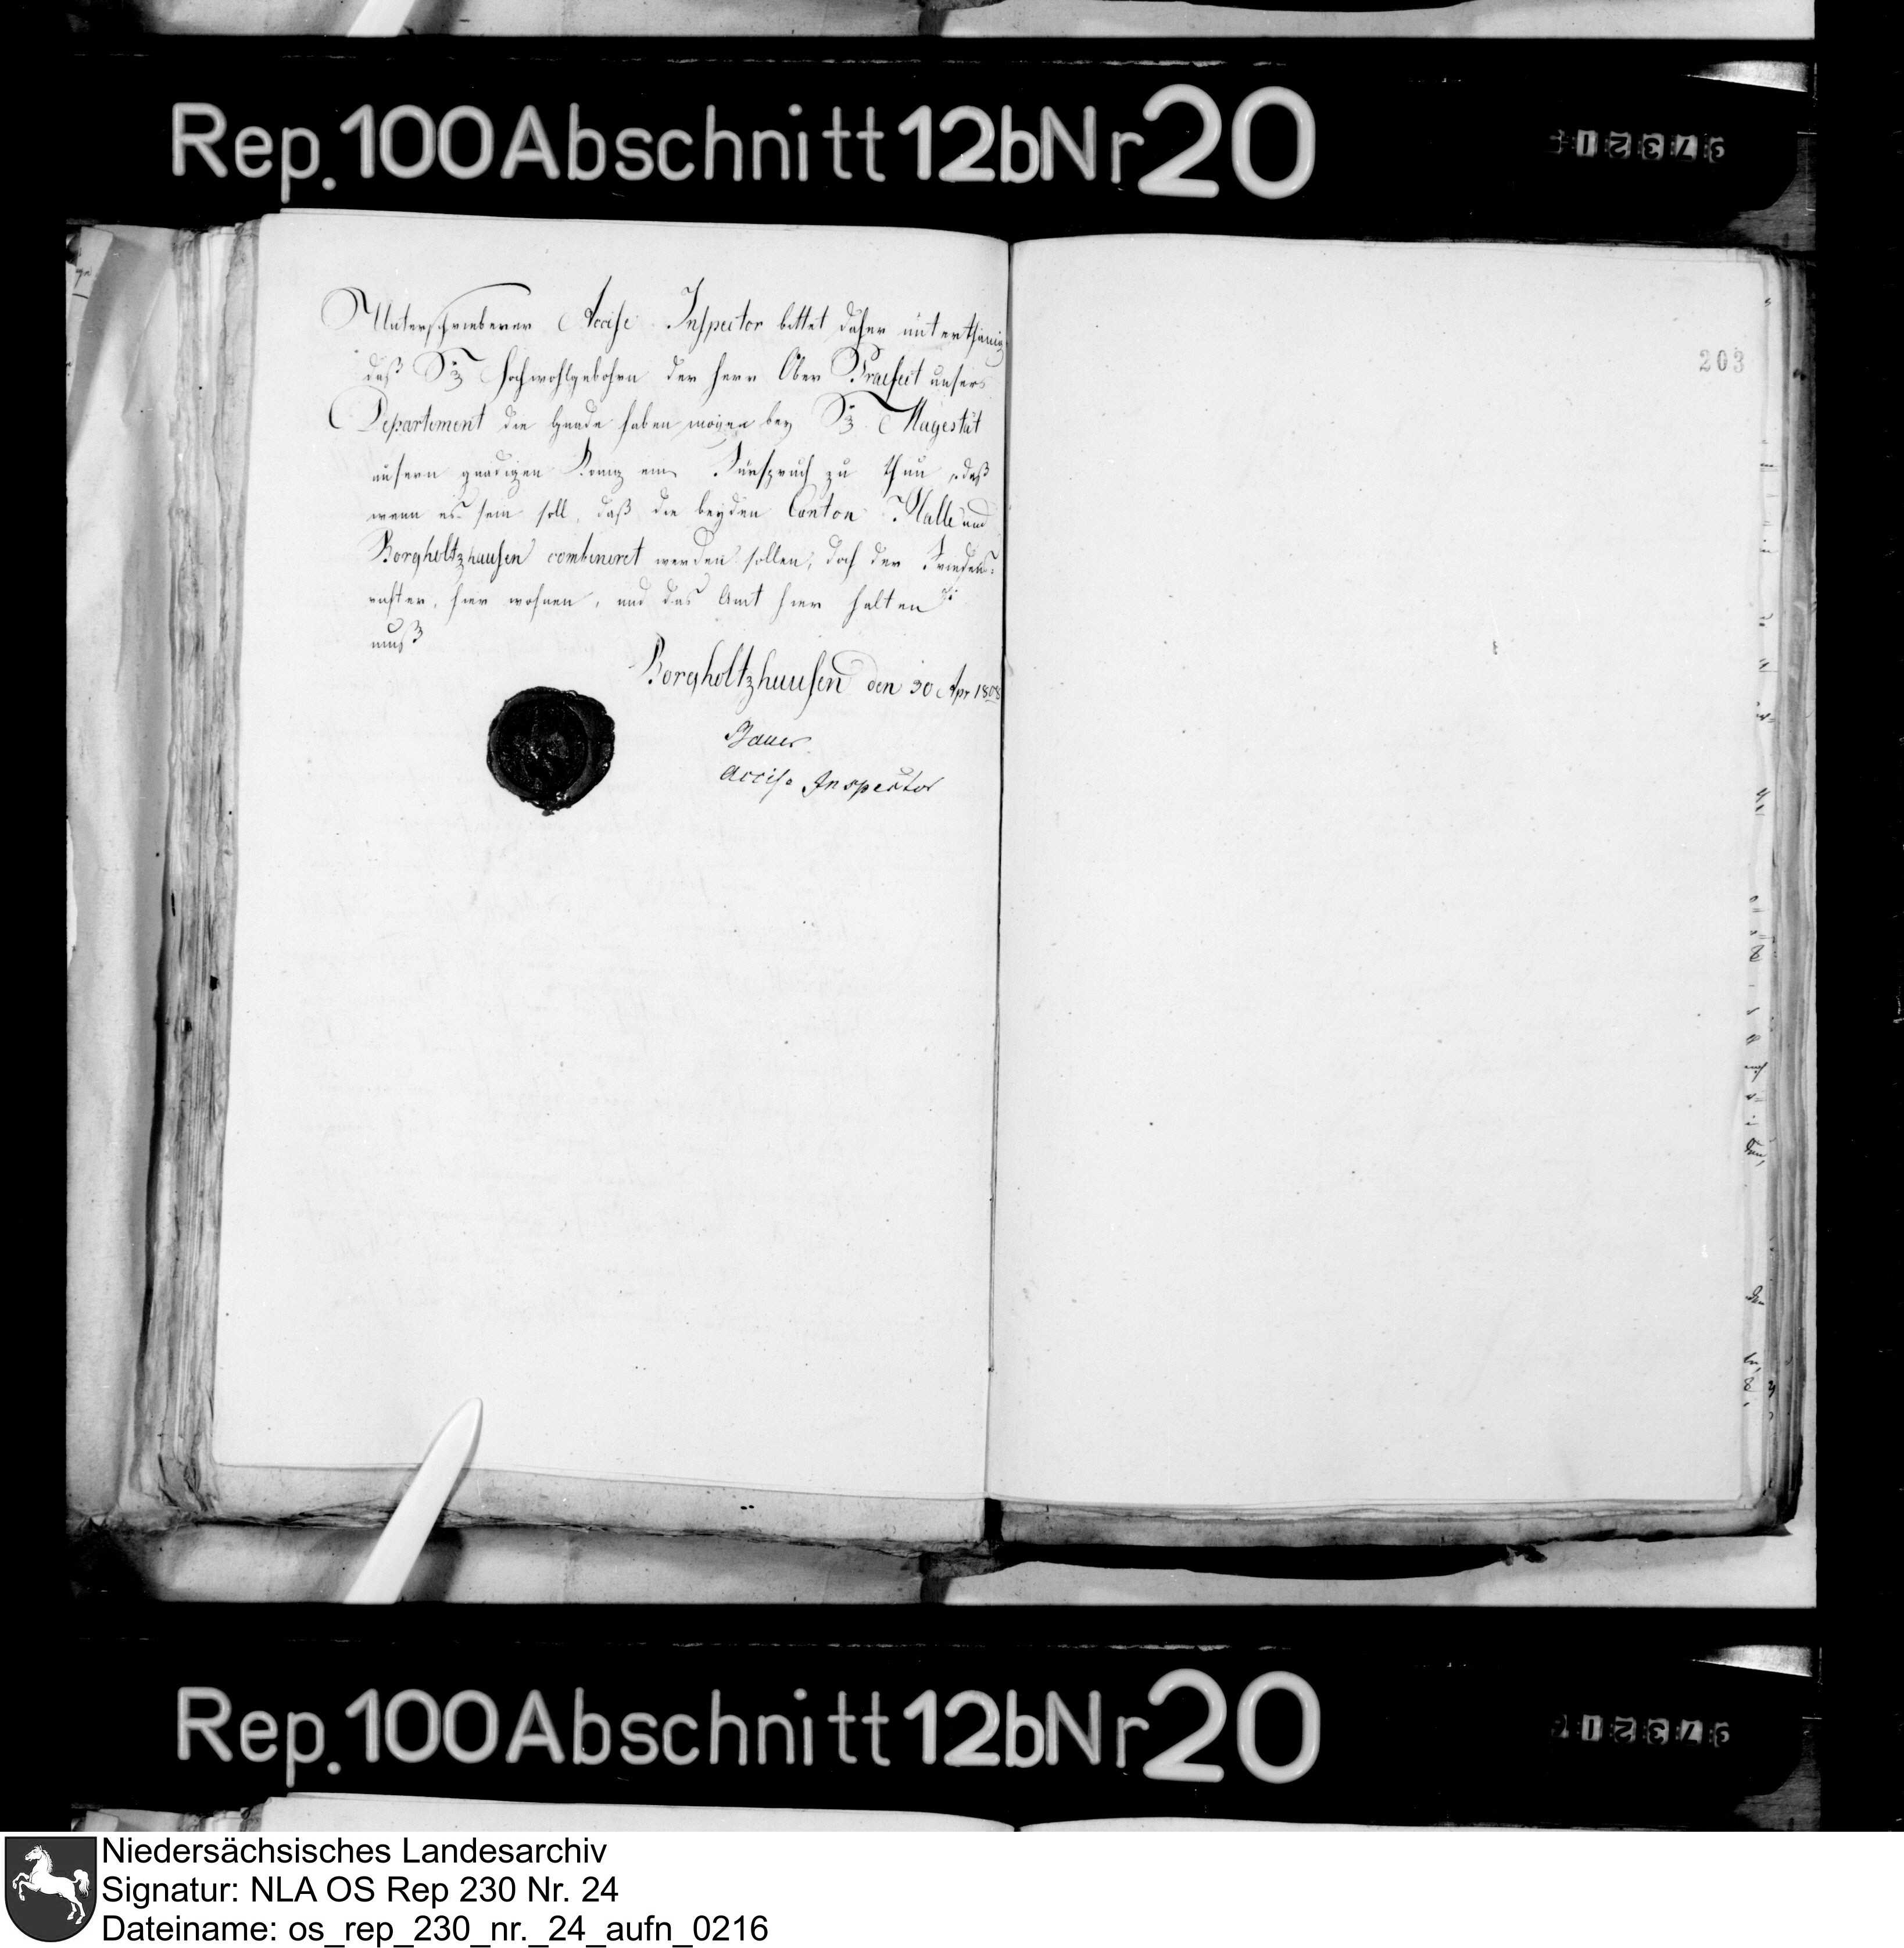 Rep. 100 Abschnitt 12b Nr 20
Unterschriebener Accise Inspector bittet daher unterthänig
daß Sr Hochwohlgebohrn der Herr Ober Praefect unsers
Departement die Gnade haben mögen bey Sr Mayestät
unsern gnädigen König eine Fürspruch zu thun, daß
wenn es sein soll, daß die beyden Canton Halle und
Borgholtzhausen combineret werden sollen, doch der Friedens-
richter, hier wohnen, und das Amt hier halten
muß
Borgholtzhausen den 30 Apr 1808
Bauer
Accise Inspector
203
Rep. 100 Abschnitt 12b Nr 20
Niedersächsisches Landesarchiv
Signatur: NLA OS Rep 230 Nr. 24
Dateiname: os_rep_230_nr._24_aufn_0216